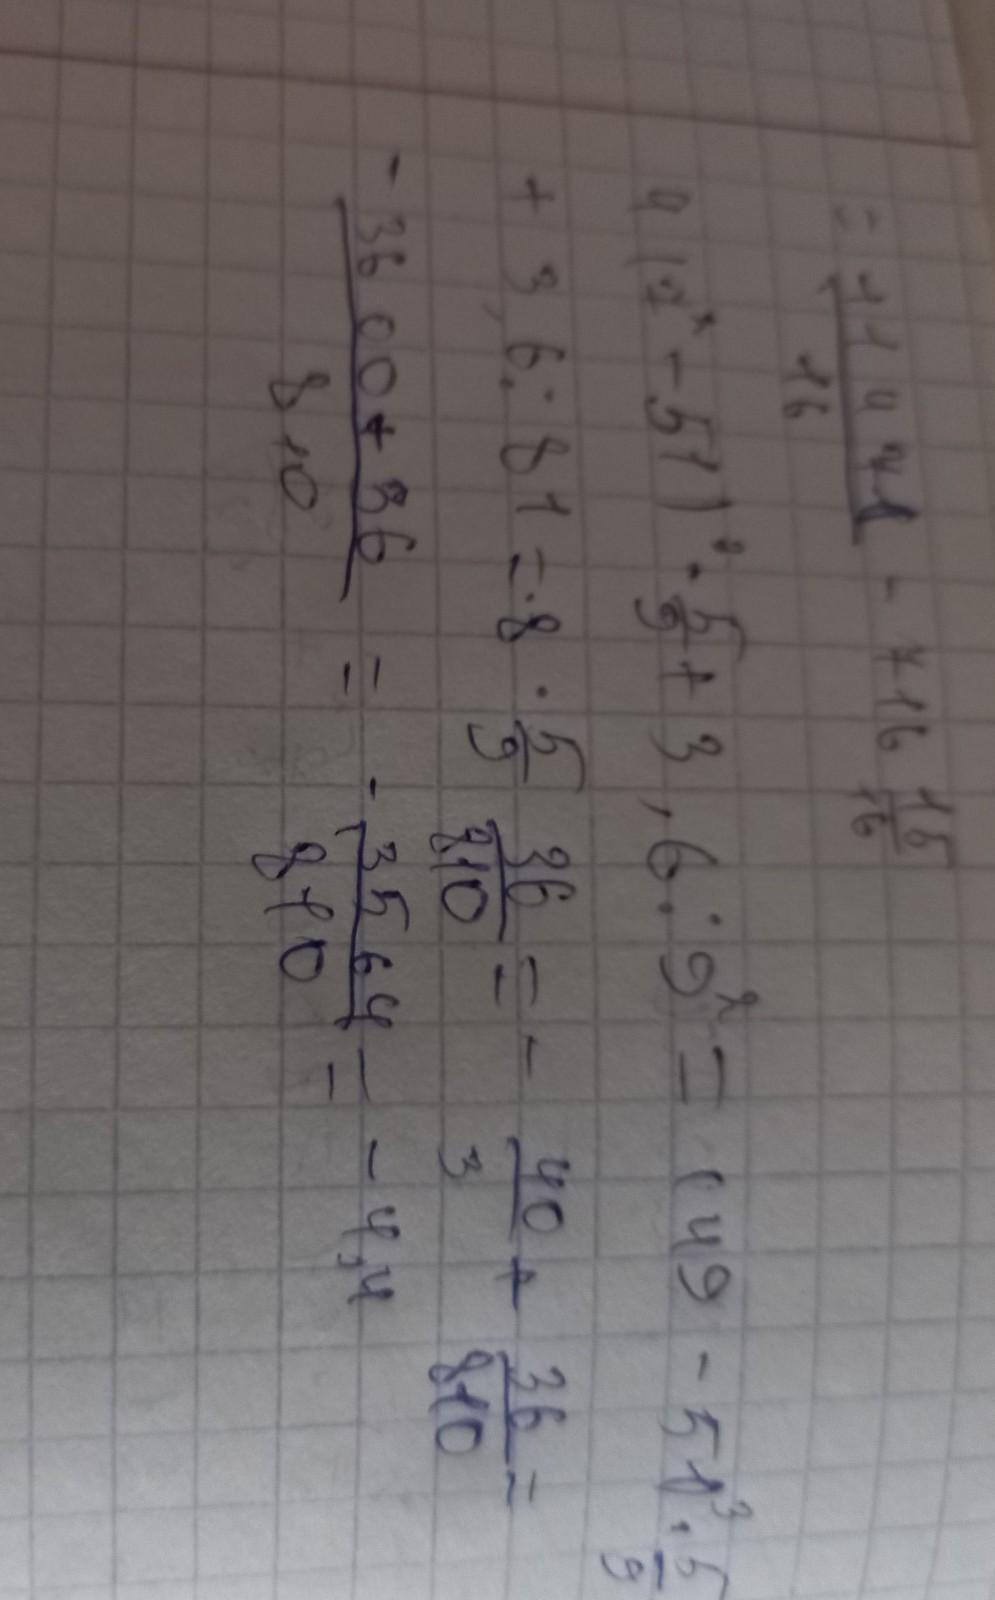 = 11441/16 - 716 15/16
4 (7² - 51)³ · 5/9 + 3,6 : 9² = (49 - 51)³ · 5/9
+ 3,6 : 81 = -8 · 5/9 36/810 = - 40/3 + 36/810 =
- 3600+36/810 = - 3564/810 = - 4,4